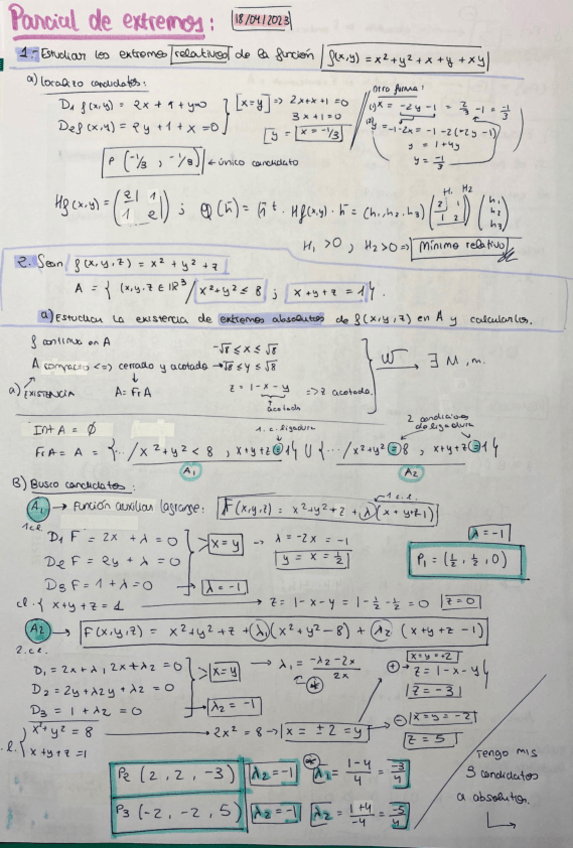 Parcial de extremos: 18/04/2023
1.- Estudiar los extremos relativos de la función f(x,y) = x² + y² + x + y + xy
a) Localizo candidatos:
D₁ f(x,y) = 2x + 1 + y = 0
D₂ f(x,y) = 2y + 1 + x = 0
x=y => 2x+x+1=0
3x+1=0
y = x = -1/3
Otra forma:
x = -2y-1 = 2/3 - 1 = -1/3
y = -1-2x = -1-2(-2y-1)
y = 1+4y
y = -1/3
P (-1/3, -1/3) ← único candidato
Hf(x,y) = (2 1 / 1 2) ; φ(h̄) = h̄ᵗ · Hf(x,y) · h̄ = (h₁, h₂, h₃) (2 1 / 1 2) (h₁ h₂ h₃)
H₁ H₂
H₁ > 0, H₂ > 0 => Mínimo relativo
2. Sean f(x,y,z) = x² + y² + z
A = { (x,y,z ∈ ℝ³ / x²+y² ≤ 8 ; x+y+z = 1 }.
a) Estudiar la existencia de extremos absolutos de f(x,y,z) en A y calcularlos.
f continua en A
-√8 ≤ x ≤ √8
A compacto <=> cerrado y acotado → -√8 ≤ y ≤ √8
W → ∃ M, m.
a) EXISTENCIA A = Fr A z = 1-x-y => z acotada.
acotada
Int A = ∅
1. c. ligadura
2 condiciones de ligadura
Fr A = A = {.../ x²+y² < 8, x+y+z = 1} ∪ {.../ x²+y² = 8, x+y+z = 1}
A₁ A₂
B) Busco candidatos:
1 c.l.
A₁ → Función auxiliar lagrange: F(x,y,z) = x²+y²+z + λ(x+y+z-1)
1 c.l.
D₁ F = 2x + λ = 0
D₂ F = 2y + λ = 0
D₃ F = 1 + λ = 0
x=y → λ = -2x = -1
y = x = 1/2
λ = -1
λ = -1
P₁ = (1/2, 1/2, 0)
c.l. { x+y+z = 1 → z = 1-x-y = 1 - 1/2 - 1/2 = 0 z=0
A₂ → F(x,y,z) = x²+y²+z + λ₁(x²+y²-8) + λ₂ (x+y+z-1)
2.c.l.
D₁ = 2x + λ₁ 2x + λ₂ = 0
D₂ = 2y + λ₂y + λ₂ = 0
D₃ = 1 + λ₂ = 0
x=y → λ₁ = -λ₂-2x / 2x
λ₂ = -1
+ x=y=+2
z = 1-x-y
z = -3
x²+y² = 8 → 2x² = 8 → x = ±2 = y
x+y+z = 1
- x=y=-2
z = 5
P₂ (2, 2, -3) λ₂ = -1 λ₁ = 1-4/4 = -3/4
P₃ (-2, -2, 5) λ₂ = -1 λ₂ = 1+4/-4 = -5/4
Tengo mis
3 candidatos
a absolutos.